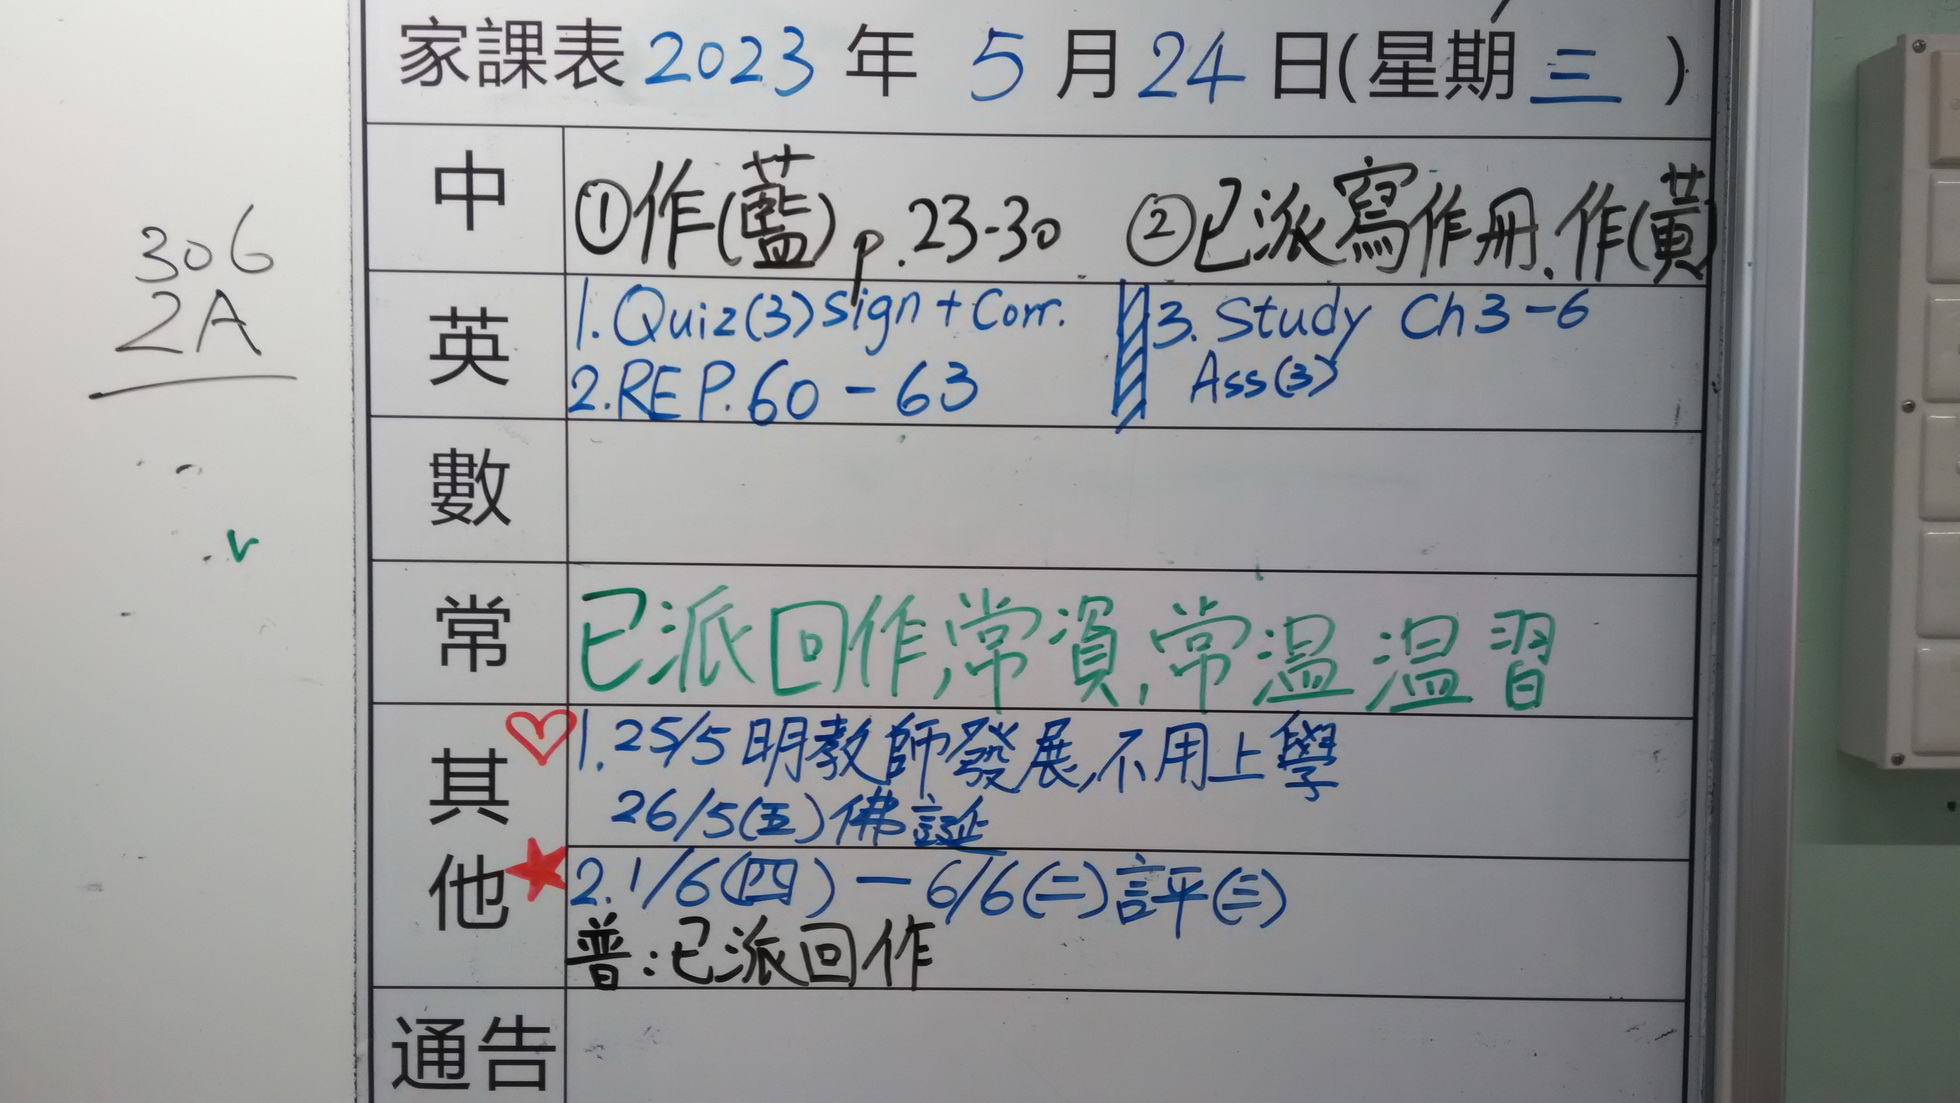 家課表 2023 年 5 月 24 日(星期 三 )
306
2A
中
①作(藍) p.23-30 ②已派寫作冊、作(黃)
英
1. Quiz(3) sign + Corr.
2. RE P. 60 - 63
3. Study Ch 3 - 6
Ass(3)
數
常
已派回作,常資,常温 温習
其他
1. 25/5 明教師發展,不用上學
26/5(五)佛誕
2. 1/6(四) — 6/6(二)評(三)
普:已派回作
通告